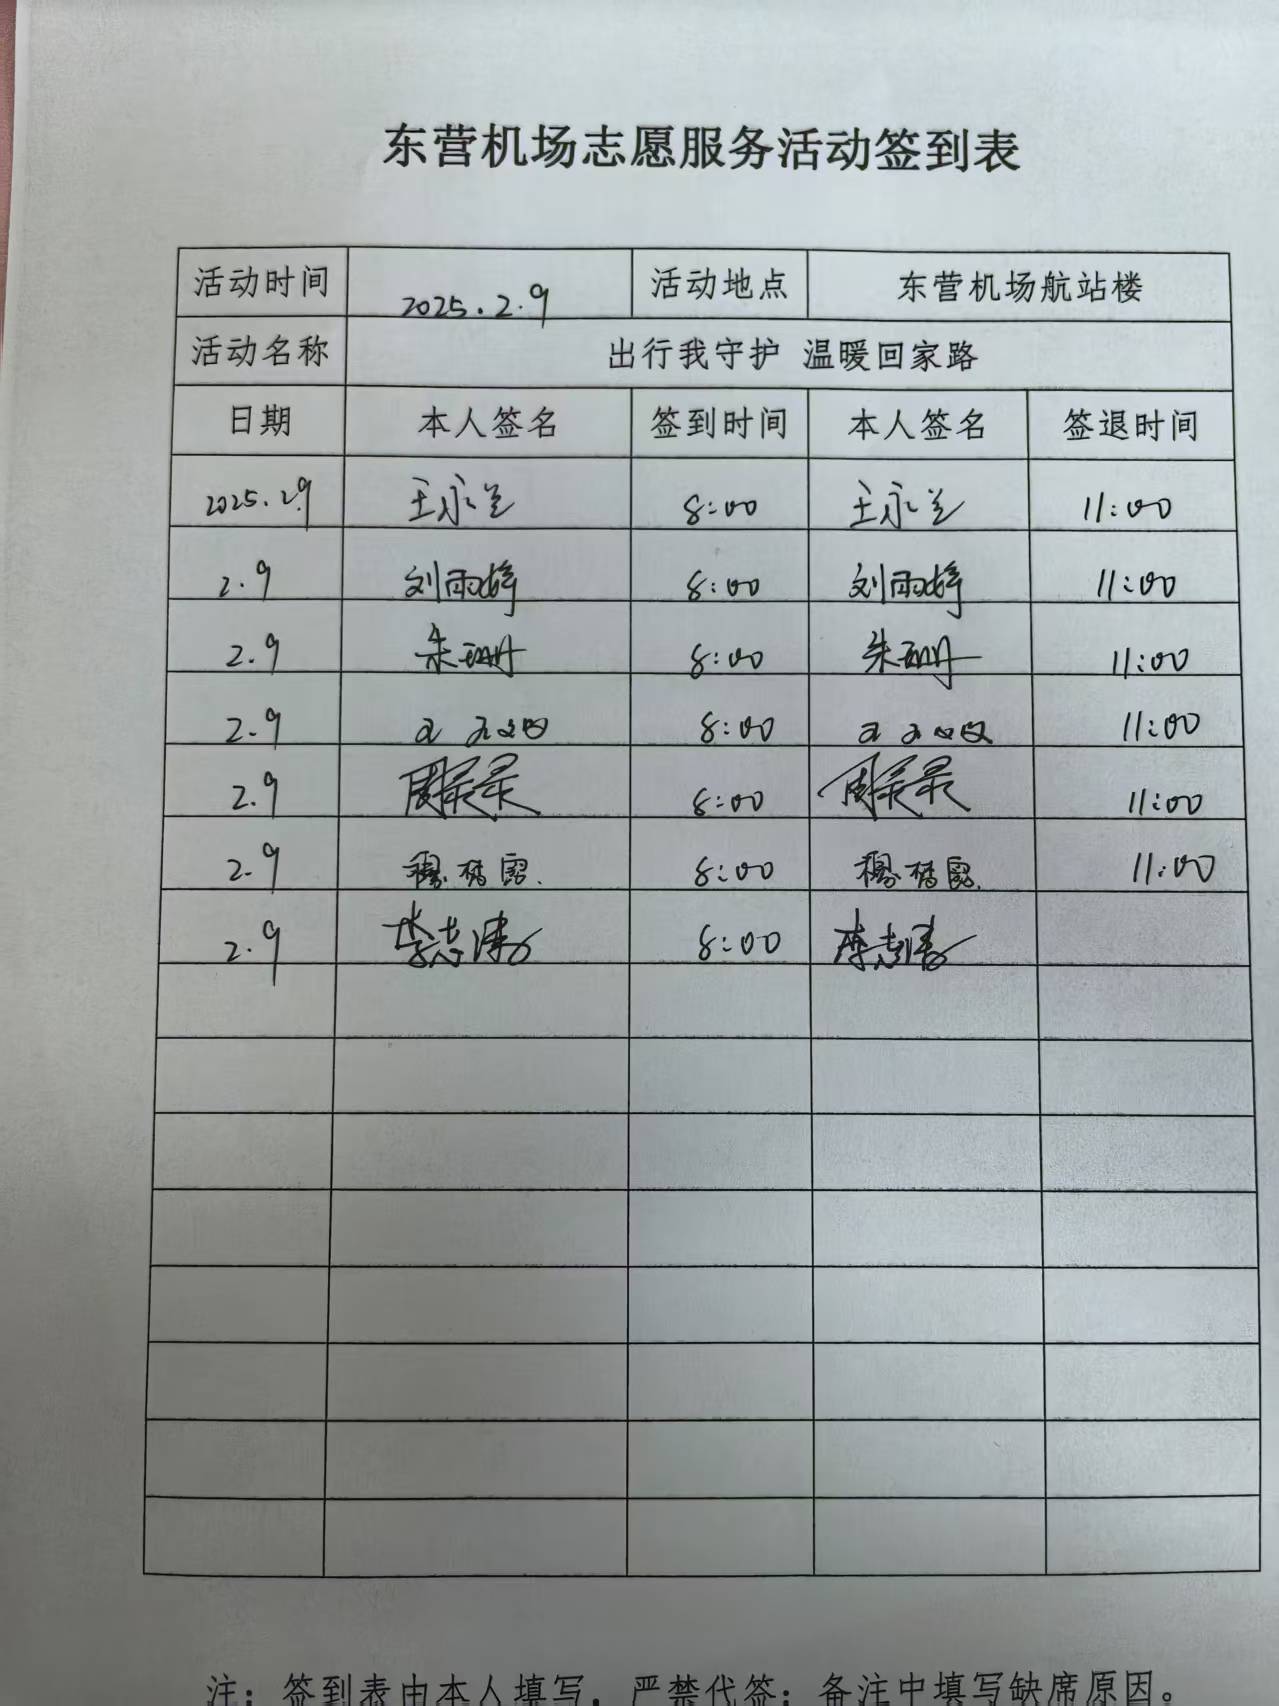 东营机场志愿服务活动签到表
活动时间 2025.2.9 活动地点 东营机场航站楼
活动名称 出行我守护 温暖回家路
日期 本人签名 签到时间 本人签名 签退时间
2025.2.9 王永兰 8:00 王永兰 11:00
2.9 刘雨婷 8:00 刘雨婷 11:00
2.9 朱珊珊 8:00 朱珊珊 11:00
2.9 8:00 11:00
2.9 周昊昊 8:00 周昊昊 11:00
2.9 8:00 11:00
2.9 李志涛 8:00 李志涛
注：签到表由本人填写，严禁代签；备注中填写缺席原因。